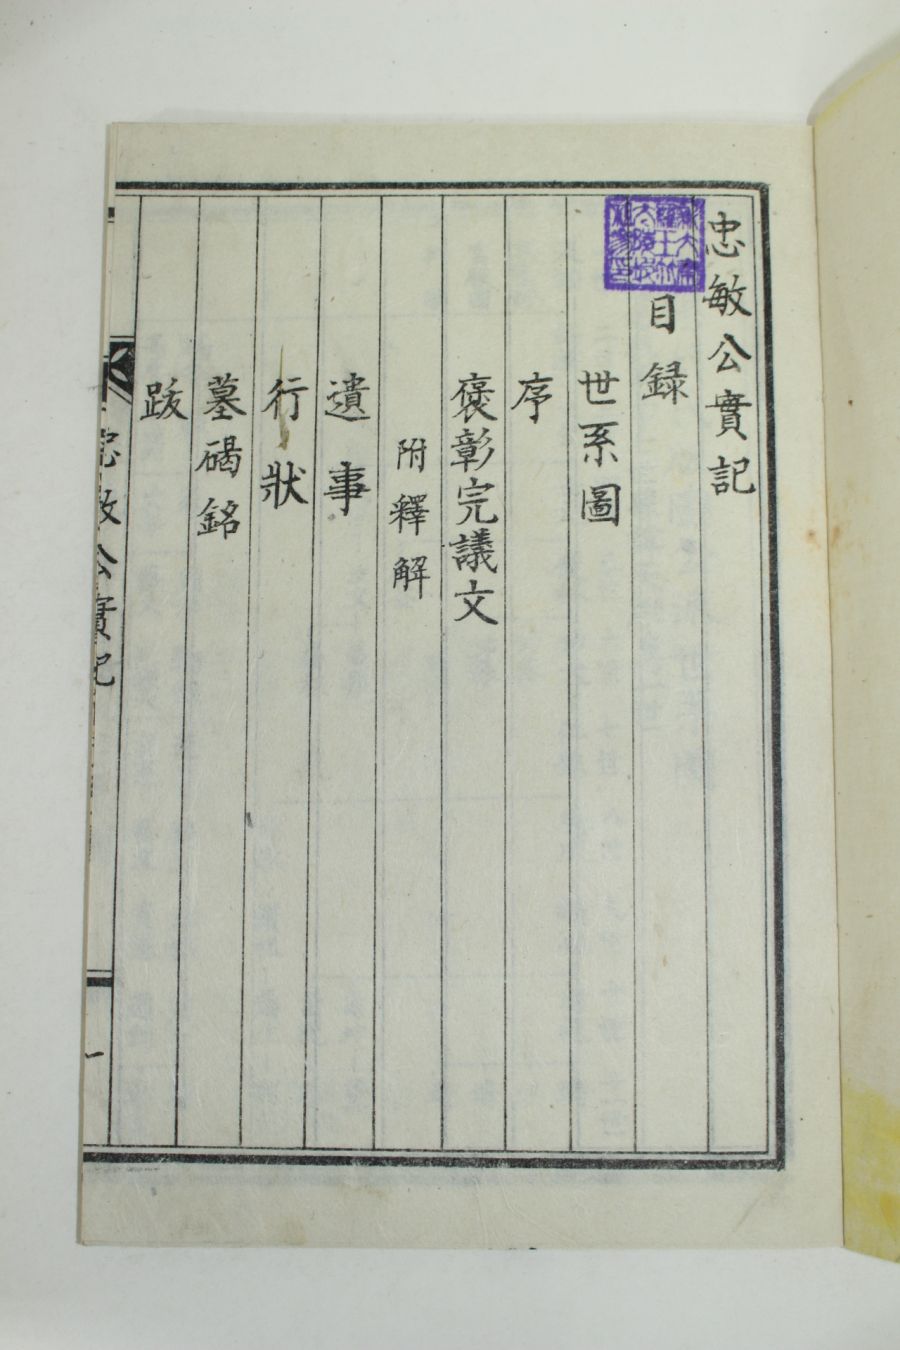 忠敏公實記
目録
世系圖
序
褒彰完議文
附釋解
遺事
行狀
墓碣銘
跋
忠敏公實記
一